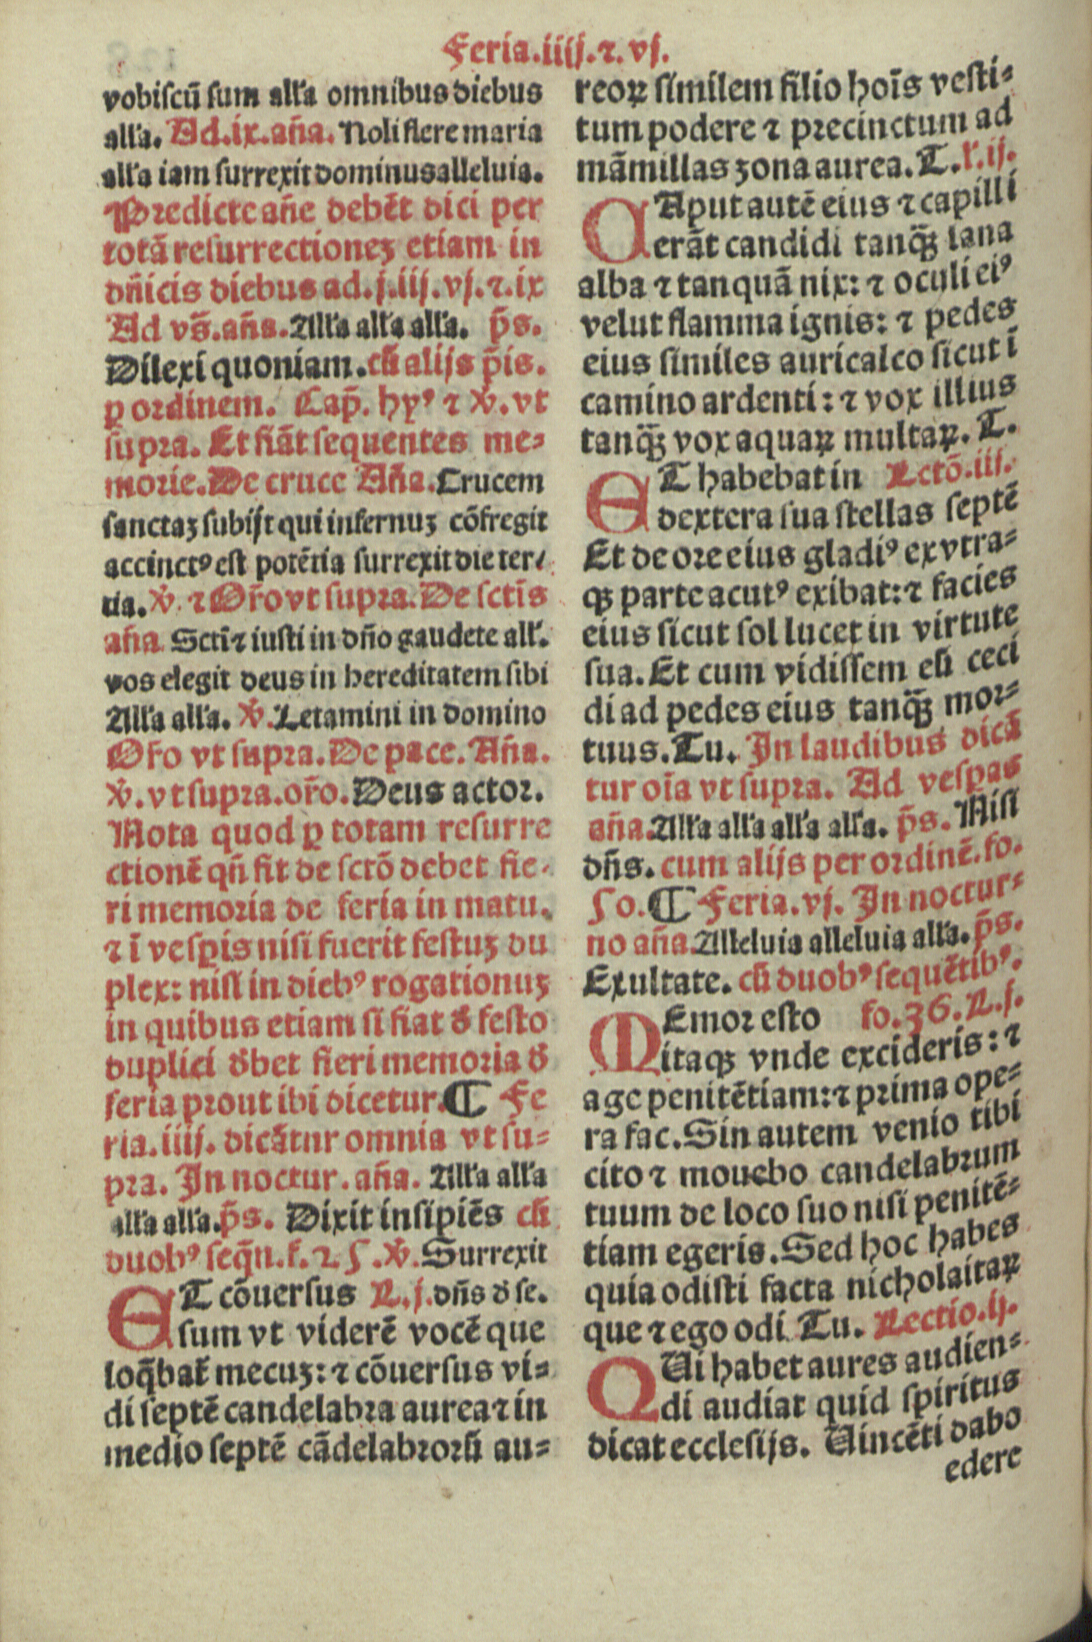 Feria.iiij.⁊.vj.
vobiscū sum all'a omnibus diebus
all'a. Ad.ix.aña. Noli flere maria
all'a iam surrexit dominus alleluia.
Predicte añe debēt dici per
totā resurrectionez etiam in
dñicis diebus ad.j.iij.vj.⁊.ix
Ad vs̄.aña. All'a all'a all'a. ps̄.
Dilexi quoniam. cū alijs p̄is.
ꝑ ordinem. Cap̄. hyꝰ ⁊ v̾. vt
supra. Et fiāt sequentes me=
morie. De cruce Aña. Crucem
sanctaz subijt qui infernuz cōfregit
accinctꝰ est potētia surrexit die ter/
tia. v̾. ⁊ Or̄o vt supra. De sctīs
aña Sctī ⁊ iusti in dño gaudete all'.
vos elegit deus in hereditatem sibi
All'a all'a. v̾. Letamini in domino
Or̄o vt supra. De pace. Aña.
v̾. vt supra. or̄o. Deus actor.
Nota quod ꝑ totam resurre
ctionē qñ fit de sctō debet fie-
ri memoria de feria in matu.
⁊ ī vesꝑis nisi fuerit festuz du
plex: nisi in diebꝰ rogationuz
in quibus etiam si fiat đ festo
duplici đbet fieri memoria đ
feria prout ibi dicetur. ¶ Fe
ria.iiij. dicātur omnia vt su=
pra. In noctur. aña. All'a all'a
all'a all'a. ps̄. Dixit insipiēs cū
duobꝰ seqñ. f. 25. v̾. Surrexit
ET cōuersus L.j. dñs đ se.
sum vt viderē vocē que
loq̄bat̄ mecuz: ⁊ cōuersus vi=
di septē candelabra aurea ⁊ in
medio septē cādelabrorū au=
reoꝝ similem filio hoīs vesti=
tum podere ⁊ precinctum ad
māmillas zona aurea. T. L'.ij.
CAput autē eius ⁊ capilli
erāt candidi tanqꝫ lana
alba ⁊ tanquā nix: ⁊ oculi eiꝰ
velut flamma ignis: ⁊ pedes
eius similes auricalco sicut ī
camino ardenti: ⁊ vox illius
tanqꝫ vox aquaꝝ multaꝝ. T.
ET habebat in Lctō.iij.
dextera sua stellas septē
Et de ore eius gladiꝰ ex vtra=
qꝫ parte acutꝰ exibat: ⁊ facies
eius sicut sol lucet in virtute
sua. Et cum vidissem eū ceci
di ad pedes eius tanqꝫ mor=
tuus. Tu. In laudibus dicā
tur oīa vt supra. Ad vesꝑas
aña. All'a all'a all'a all'a. ps̄. Nisi
dñs. cum alijs per ordinē. fo.
50. ¶ Feria.vj. In noctur=
no aña. Alleluia alleluia all'a. ps̄.
Exultate. cū duobꝰ sequētibꝰ.
MEmor esto fo.36.L.j.
itaqꝫ vnde excideris: ⁊
age penitētiam: ⁊ prima ope=
ra fac. Sin autem venio tibi
cito ⁊ mouebo candelabrum
tuum de loco suo nisi penitē=
tiam egeris. Sed hoc habes
quia odisti facta nicholaitaꝝ
que ⁊ ego odi. Tu. Lectio.ij.
QUi habet aures audien=
di audiat quid spiritus
dicat ecclesijs. Uincēti dabo
edere